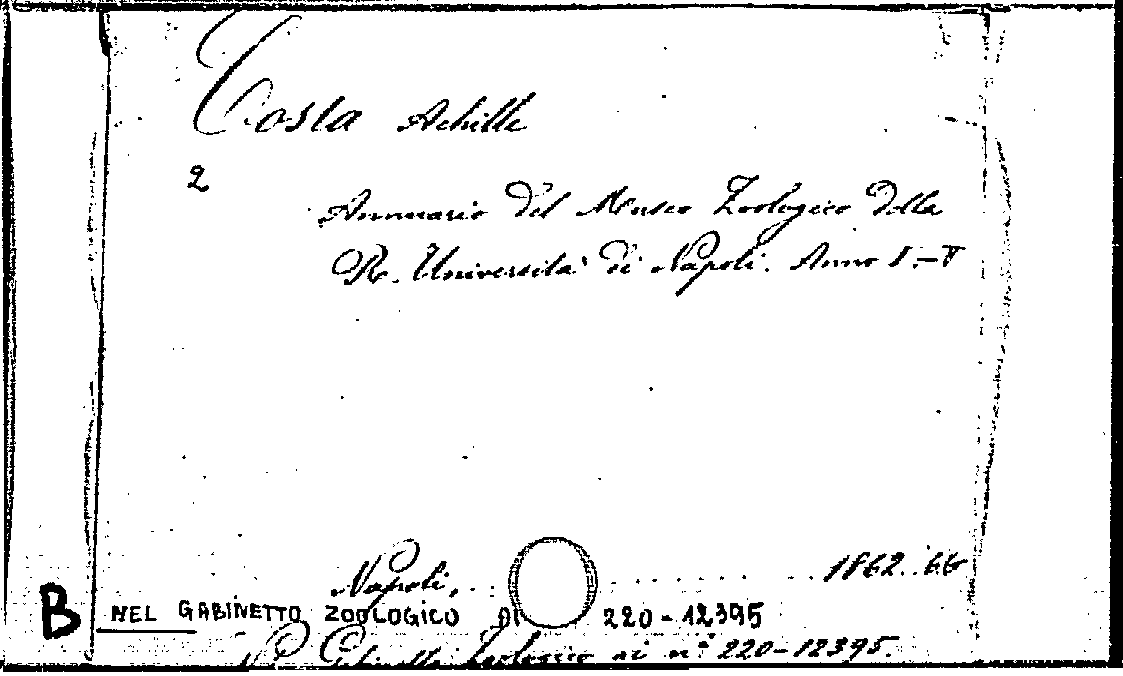 Costa Achille
2
Annuario del Museo Zoologico della
R. Università di Napoli. Anno I.-V
Napoli, . . . . . . . . . . . 1862..66
B NEL GABINETTO ZOOLOGICO AI 220-12395
Gabinetto Zoologico ai nⁱ 220-12395.